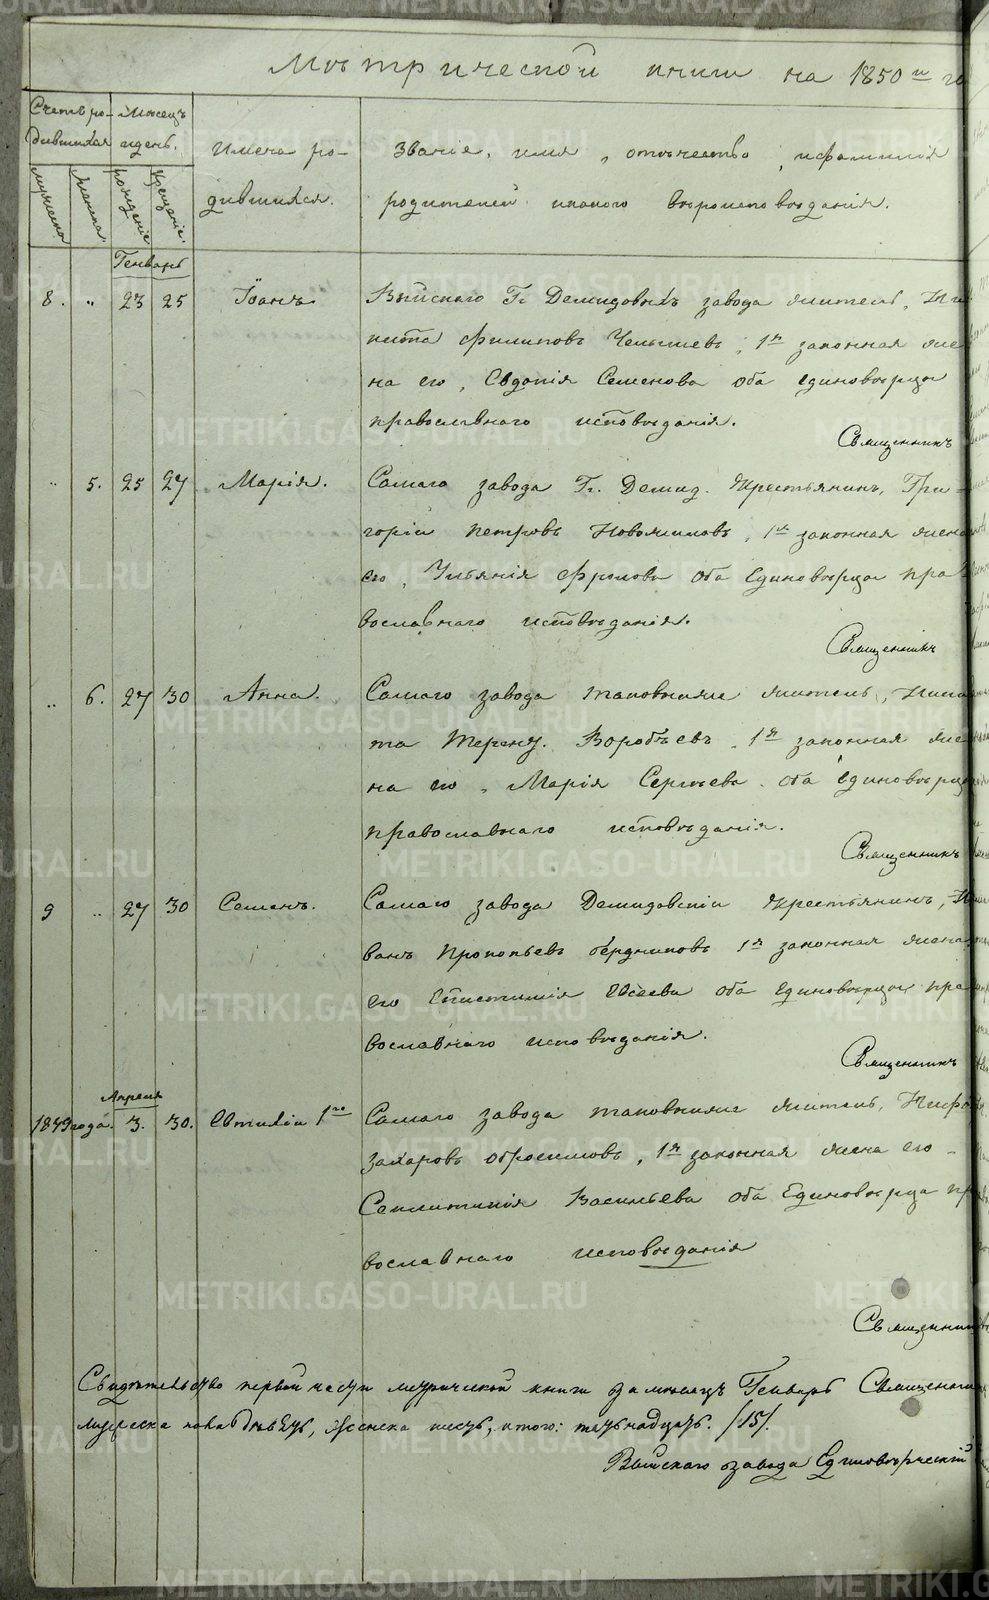 Метрической книги на 1850й го
Счетъ ро- Месяцъ
дившихся идень.
Имена ро-
дившихся.
Званіе, имя, отечество, ифамилія
родителей икакого вѣроисповѣданія.
мужеска женска рожденіе крещеніе
Генварь
8. „ 23 25 Іоанъ Выйскаго Гг Демидовыхъ завода житель, Ни
кита Филиповъ Чепышевъ, 1я законная же
на его, Евдокія Семенова оба единовѣрцы
православнаго исповѣданія.
Священникъ
„ 5. 25 27 Марія. Самаго завода Гг. Демид. Крестьянин, Гри
горій Петровъ Новожиловъ, 1я законная жена
его, Ульянія Фролова оба Единовѣрцы пра
вославнаго исповѣданія.
Священникъ
„ 6. 27 30 Анна. Самаго завода таковыйже житель, Ники
та Терент. Воробьевъ, 1я законная же
на его, Марія Сергѣева оба единовѣрцы
православнаго исповѣданія.
Священникъ
9 „ 27 30 Семенъ. Самаго завода Демидовскій Крестьянинъ, И
ванъ Прокопьевъ бердниковъ 1я законная жена
его Епистимія Евсеева оба единовѣрцы пра
вославнаго исповѣданія.
Священникъ
Апреля
1849 года. 3. 30. Евтихій 1го Самаго завода таковыйже житель,
Захаровъ Обросимовъ, 1я законная жена его
Секлитикія Васильева оба Единовѣрца пр
вославнаго исповѣданія
Священникъ
Свидѣтельство первой части метрической книги за месяцъ Генварь Священни
мужеска пола девять, женска шесть, итого: пятьнадцать. /15/.
Выйскаго завода Единовѣрческій
METRIKI.GASO-URAL.RU